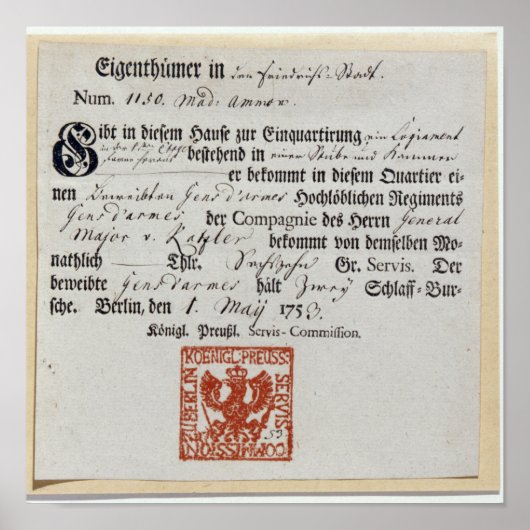 Eigenthümer in den Friedrichs-Stadt.
Num. 1150. Mad: Ammon.
Gibt in diesem Hause zur Einquartirung ein Logiament
in der Etage
bestehend in einer Stube und Kammer
er bekommt in diesem Quartier ei-
nen beweibten Gens d'armes Hochlöblichen Regiments
Gens d'armes der Compagnie des Herrn General
Major v. Katzler bekommt von demselben Mo-
nathlich — Thlr. Sechszehn Gr. Servis. Der
beweibte Gens d'armes hält Zwey Schlaff-Bur-
sche. Berlin, den 1. Maÿ 1753.
Königl. Preußl. Servis-Commission.
KOENIGL: PREUSS: SERVIS COMMISSION ZU BERLIN
53